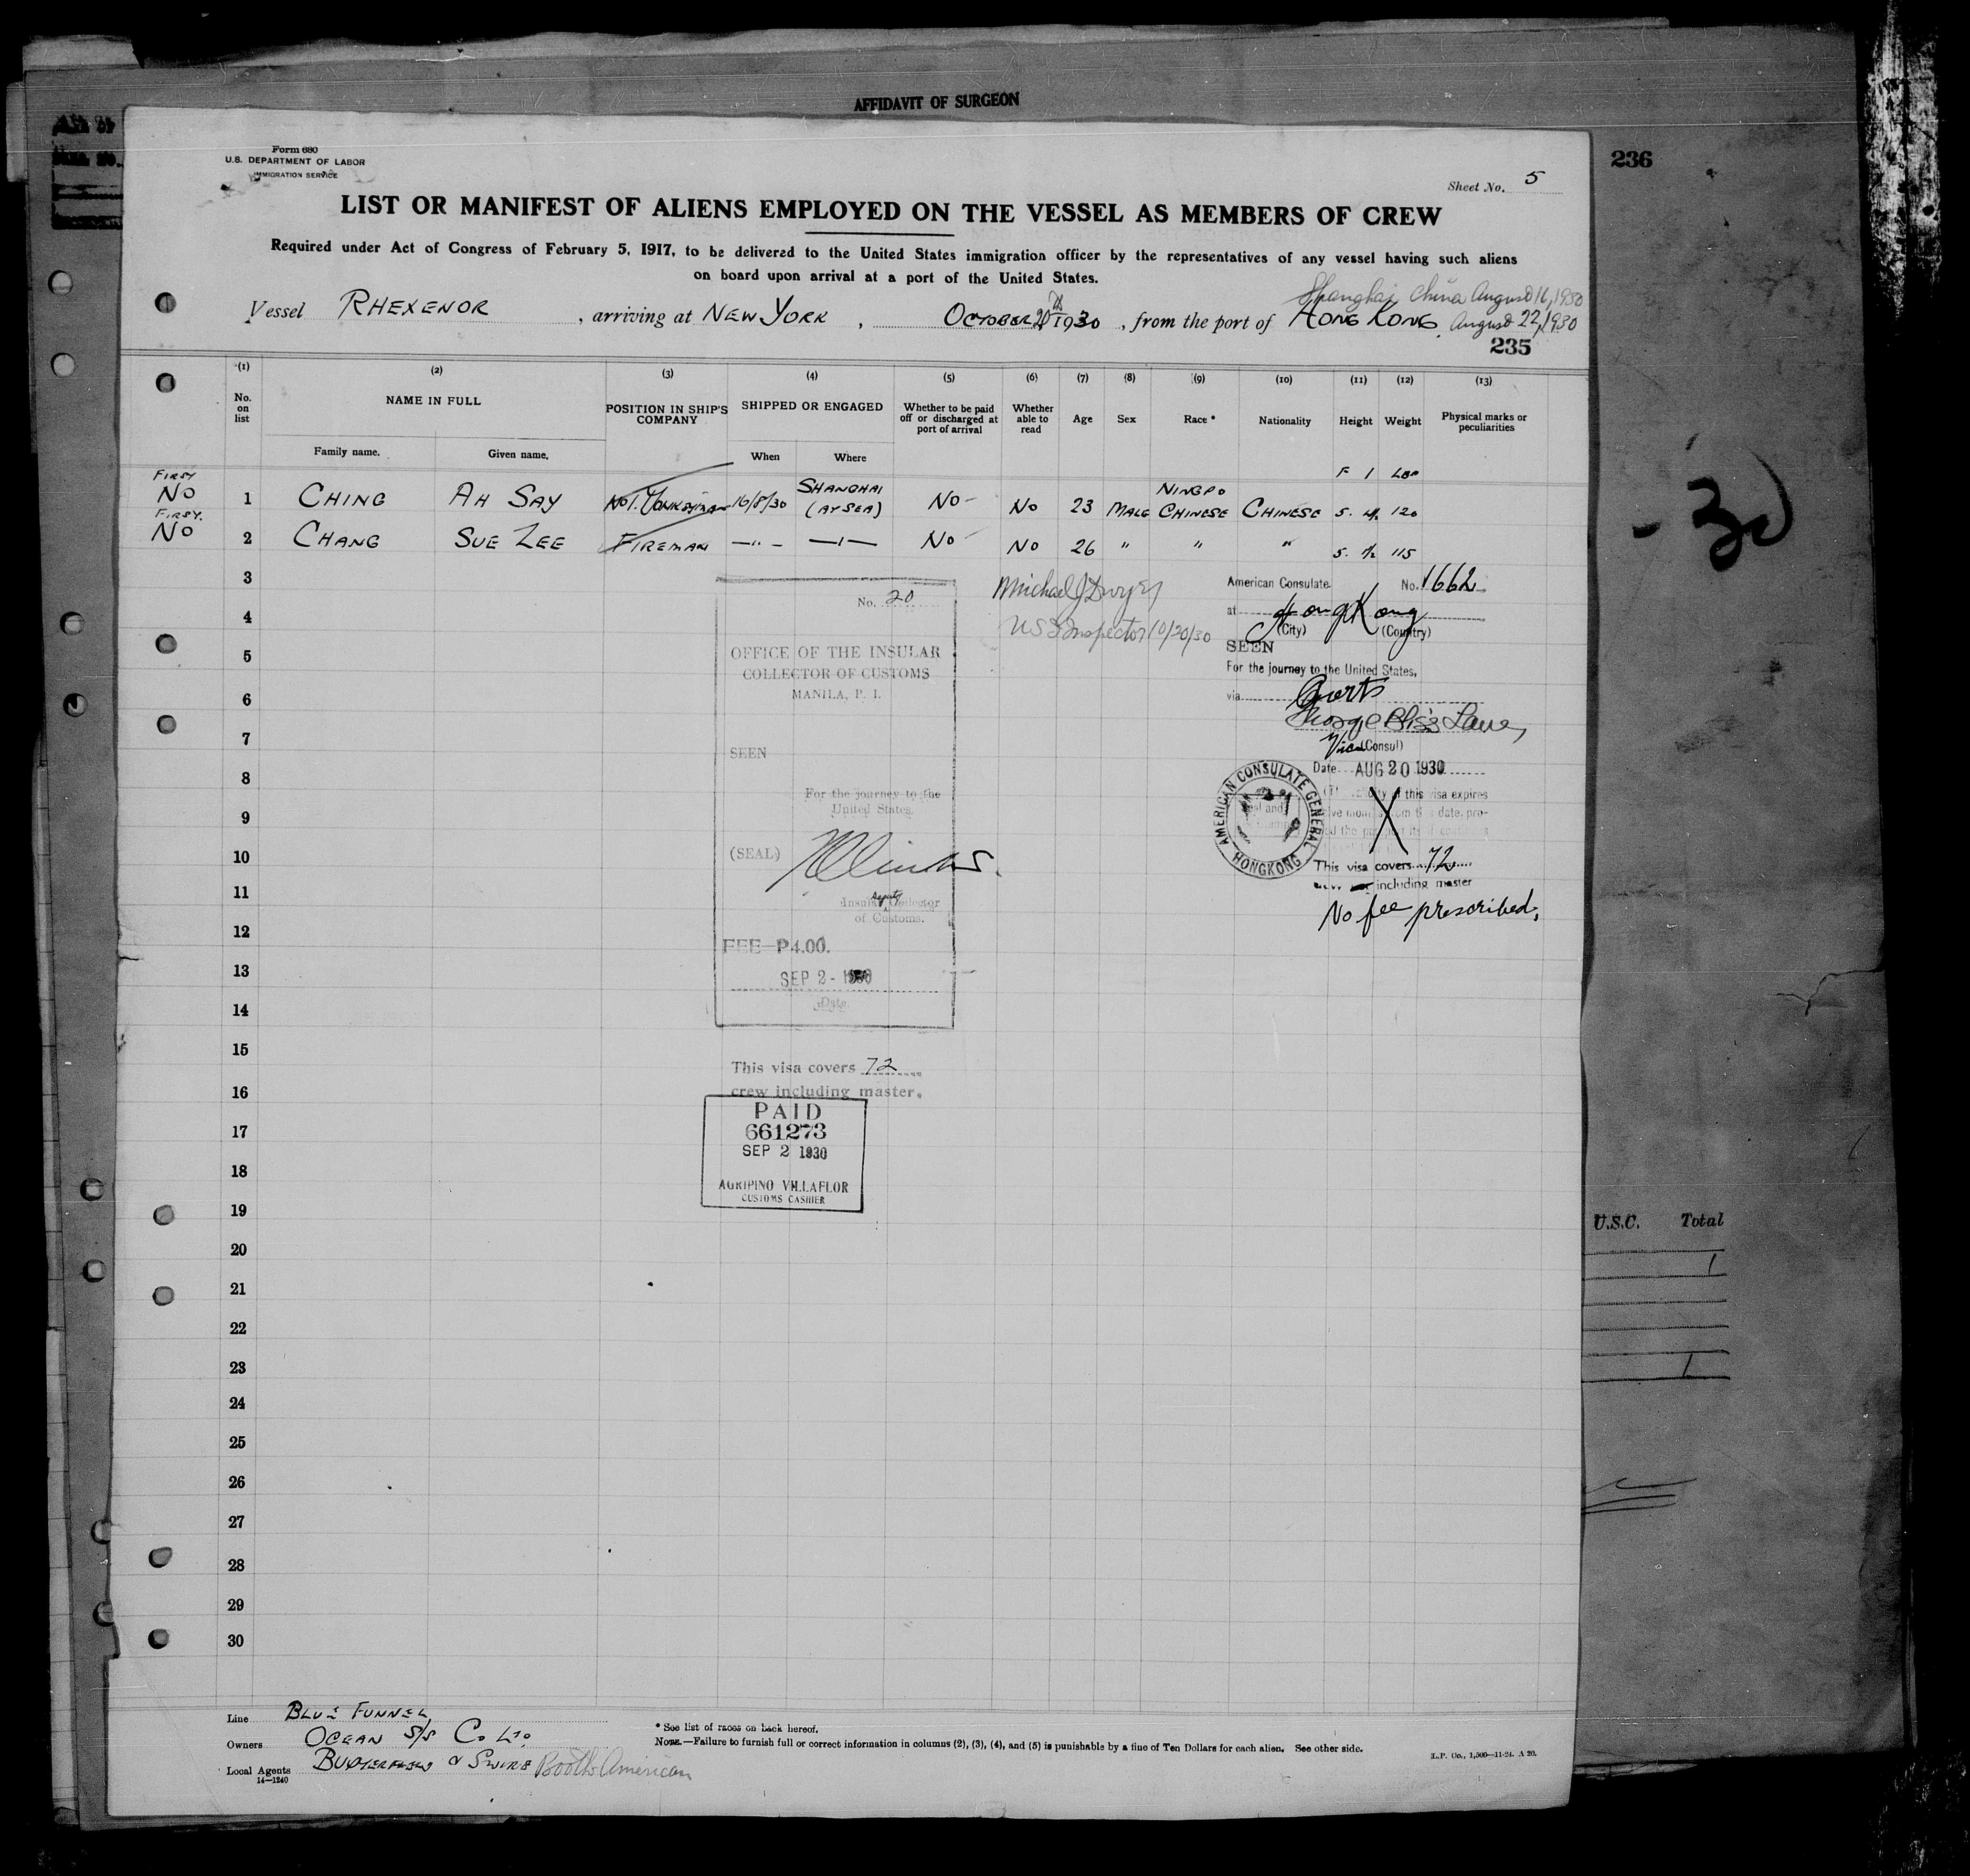 AFFIDAVIT OF SURGEON
236
Form 680
U.S. DEPARTMENT OF LABOR
IMMIGRATION SERVICE
Sheet No. 5
LIST OR MANIFEST OF ALIENS EMPLOYED ON THE VESSEL AS MEMBERS OF CREW
Required under Act of Congress of February 5, 1917, to be delivered to the United States immigration officer by the representatives of any vessel having such aliens
on board upon arrival at a port of the United States.
Shanghai China August 16, 1930
Vessel RHEXENOR, arriving at NEW YORK, OCTOBER 20 1930, from the port of HONG KONG. August 22, 1930
235
(1) (2) (3) (4) (5) (6) (7) (8) (9) (10) (11) (12) (13)
No. on list NAME IN FULL POSITION IN SHIP'S COMPANY SHIPPED OR ENGAGED Whether to be paid off or discharged at port of arrival Whether able to read Age Sex Race * Nationality Height Weight Physical marks or peculiarities
Family name. Given name. When Where
F I LBS
FIRST NO 1 CHING AH SAY No 1. 16/8/30 SHANGHAI (AT SEA) NO - NO 23 MALE NINGPO CHINESE CHINESE 5. 4. 120
FIRST. NO 2 CHANG SUE ZEE FIREMAN —"— — NO NO 26 " " " 5. 115
3
4
5
6
7
8
9
10
11
12
13
14
15
16
17
18
19
20
21
22
23
24
25
26
27
28
29
30
No. 20
OFFICE OF THE INSULAR
COLLECTOR OF CUSTOMS
MANILA, P. I.
SEEN
For the journey to the
United States.
(SEAL)
Deputy
Insular Collector
of Customs.
FEE P4.00.
SEP 2 - 1930
Date.
This visa covers 72
crew including master.
PAID
661273
SEP 2 1930
AGRIPINO VILLAFLOR
CUSTOMS CASHIER
Michael J Dwyer
US Inspector 10/20/30
American Consulate No. 1662
at Hong Kong
(City) (Country)
SEEN
For the journey to the United States,
via
Vice (Consul)
Date AUG 20 1930
this visa expires
X
AMERICAN CONSULATE GENERAL
HONGKONG
This visa covers 72
including master
No fee prescribed.
- 30
U.S.C. Total
1
1
Line BLUE FUNNEL
Owners OCEAN S/S Co LTD
Local Agents BUTTERFIELD & SWIRE Booth American
14—1240
* See list of races on back hereof.
NOTE.—Failure to furnish full or correct information in columns (2), (3), (4), and (5) is punishable by a fine of Ten Dollars for each alien. See other side.
L.P. Co., 1,500—11-24. A 20.